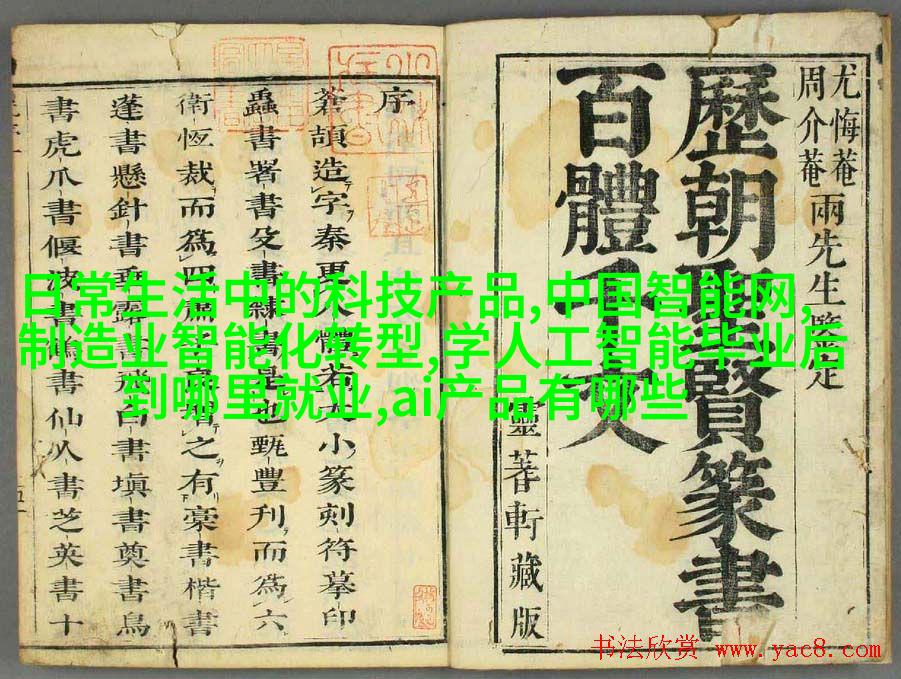 日常生活中的科技产品,中国智能网,
制造业智能化转型,学人工智能毕业后
到哪里就业,ai产品有哪些
尤悔菴
周介菴
兩先生鑒定
歷朝聖賢篆書
百體千文
靈蓍軒藏版
序
蒼頡造字秦更八體若大小篆刻符摹印
蟲書署書殳書隸書是也甄豐刋而爲六
衛恆裁而爲四之有槀書楷書
蓬書懸針書垂露書飛白書塡書奠書鳥
書虎爪書偃波書鶴書仙人書芝英書十
书法欣赏 www.yac8.com